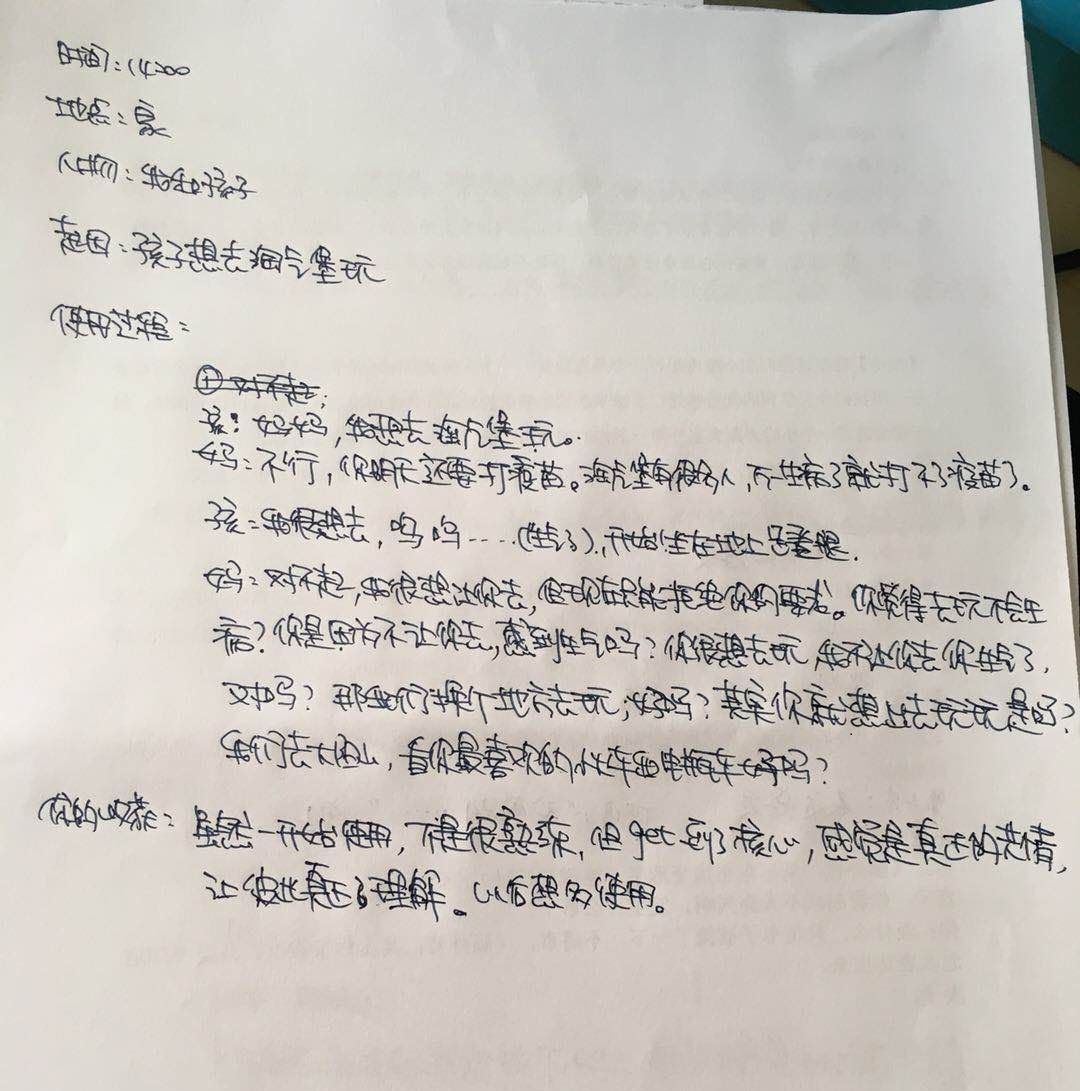 时间：14:00
地点：家
人物：我和孩子
起因：孩子想去淘气堡玩
使用过程：
① 对不起；
孩：妈妈，我想去淘气堡玩。
妈：不行，你明天还要打疫苗。淘气堡有很多人，万一生病了就打不了疫苗了。
孩：我很想去，呜呜……(生气了)，开始坐在地上
妈：对不起，我很想让你去，但现在只能拒绝你的要求。你觉得去玩不会生
病？你是因为不让你去，感到生气吗？你很想去玩，我不让你去你生气了，
对吗？那我们换个地方去玩，好吗？其实你就想出去玩玩是吗？
我们去 ，看你最喜欢的小火车和电瓶车好吗？
你的收获：虽然一开始使用，不是很熟练，但get到了核心，感觉是真正的共情，
让彼此真正了理解。以后想多使用。